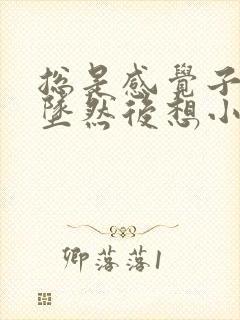 總是感覺子
墜然後想小
卿落落1